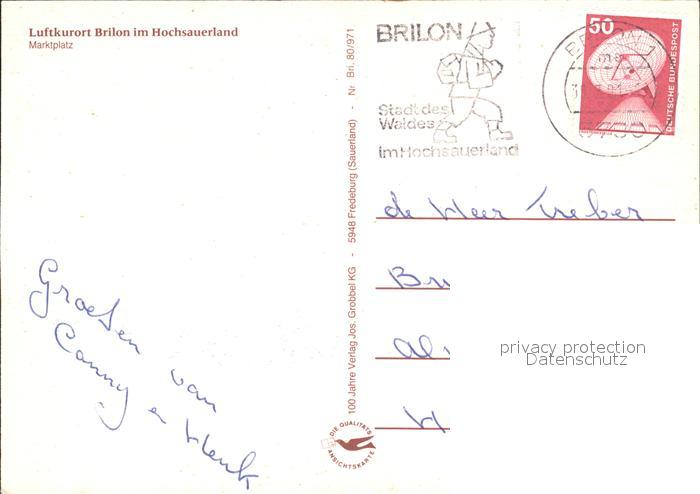 Luftkurort Brilon im Hochsauerland
Marktplatz
BRILON
Stadt des
Waldes
im Hochsauerland
50
DEUTSCHE BUNDESPOST
100 Jahre Verlag Jos. Grobbel KG - 5948 Fredeburg (Sauerland) - Nr Bri. 80/971
de Heer Treber
Groeten van
Conny en Henk
privacy protection
Datenschutz
DIE QUALITÄTS
ANSICHTSKARTE